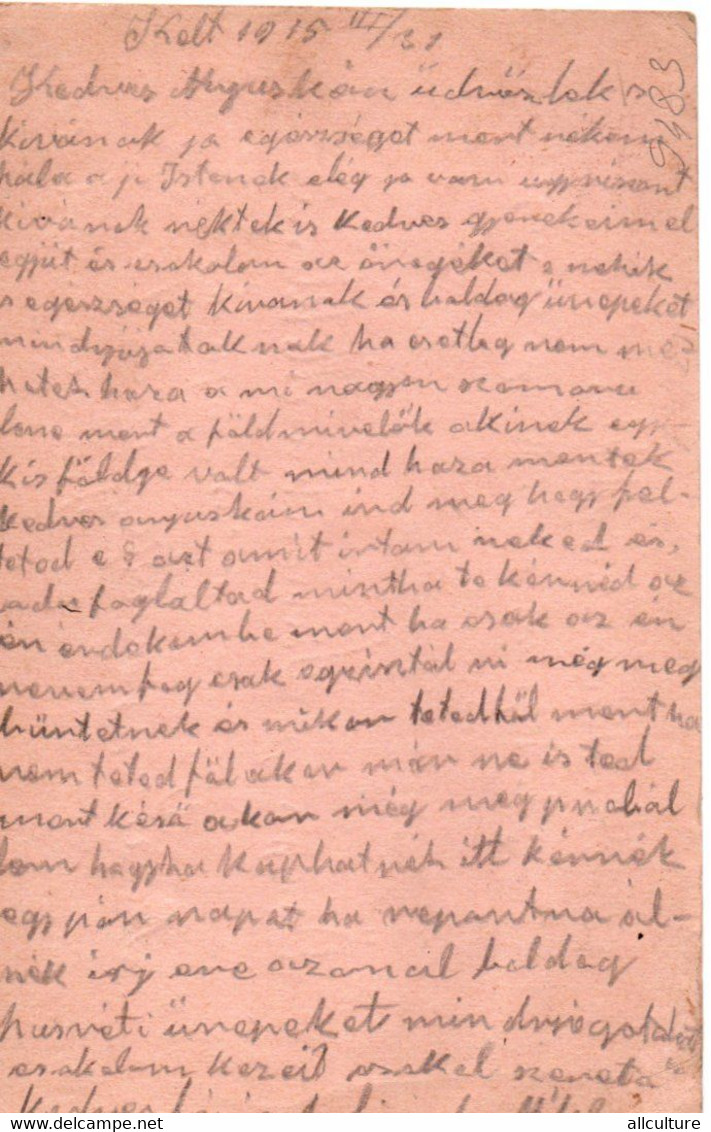 Kelt 1915 III/31
9483
Kedves Anyuskám üdvözlek s
kivánok jo egészséget mert nékem
hála a jo Istenek elég jo van ugyviszont
kivánok néktek is kedves gyerekeimel
együt és csokolom az öregéket e nekik
s egészséget kivánok és boldog ünepeket
mindnyájatoknak ha esetleg nem me
hetek haza a mi nagyon szomoru
lene mert a földmivelők akinek egy
kis földje volt mind haza mentek
kedves anyuskám ird meg hogy fel
tetod e azt amit irtam neked és
foglaltad mintha te kérnéd az
én érdekembe mert ha csak az én
nevem fog csak még meg
büntetnek és mikor teted föl mert ha
nem teted föl akor már ne is ted
mert késő akor még meg probál
lom hogyha kaphatnék itt kérnék
egy pár napot ha reportra ál-
nék irj ere azonal boldog
husvéti ünepeket mindnyájotoknak
csokolom kezeit szerető
kedves
allculture